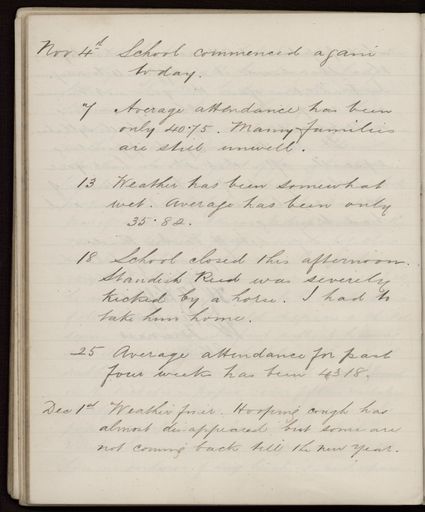 Nov. 4th School commenced again
today.
7 Average attendance has been
only 40.75. Many families
are still unwell.
13 Weather has been somewhat
wet. Average has been only
35.82.
18 School closed this afternoon.
Standish Reid was severely
kicked by a horse. I had to
take him home.
25 Average attendance for past
four weeks has been 43.18.
Dec 1st Weather finer. Hooping cough has
almost disappeared but some are
not coming back till the new year.